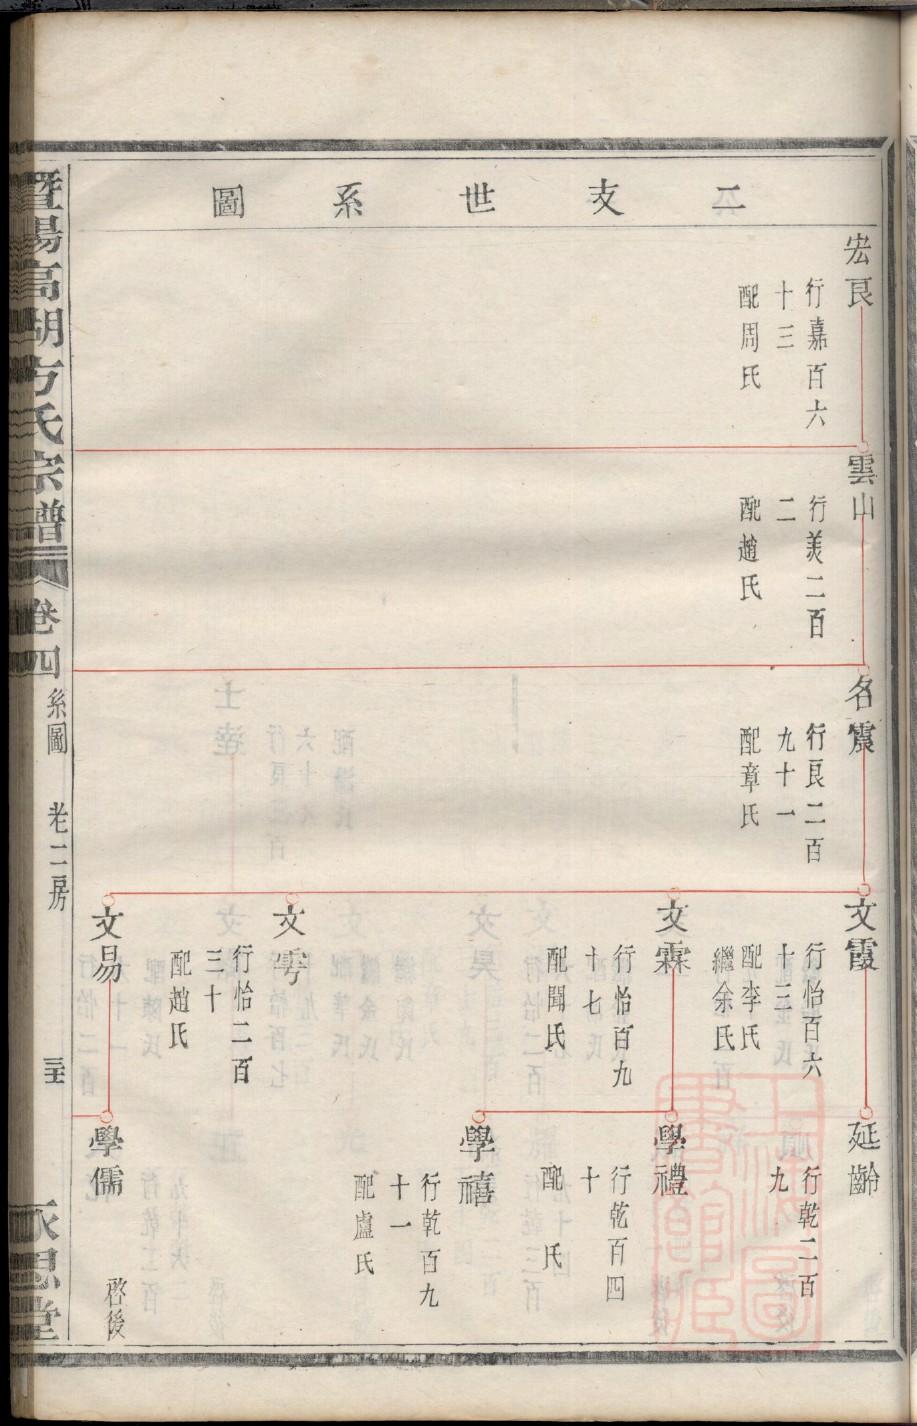 二支世系圖
宏良
行嘉百六
十三
配周氏
雲山
行美二百
二
配趙氏
名震
行良二百
九十一
配章氏
文霞
行怡百六
十三
配李氏
繼余氏
文霖
行怡百九
十七
配聞氏
文雩
行怡二百
三十
配趙氏
文易
延齡
行乾二百
九
學禮
行乾百四
十
配 氏
學禧
行乾百九
十一
配盧氏
學儒
啓後
暨陽高湖方氏宗譜
卷四
系圖 老二房
永思堂